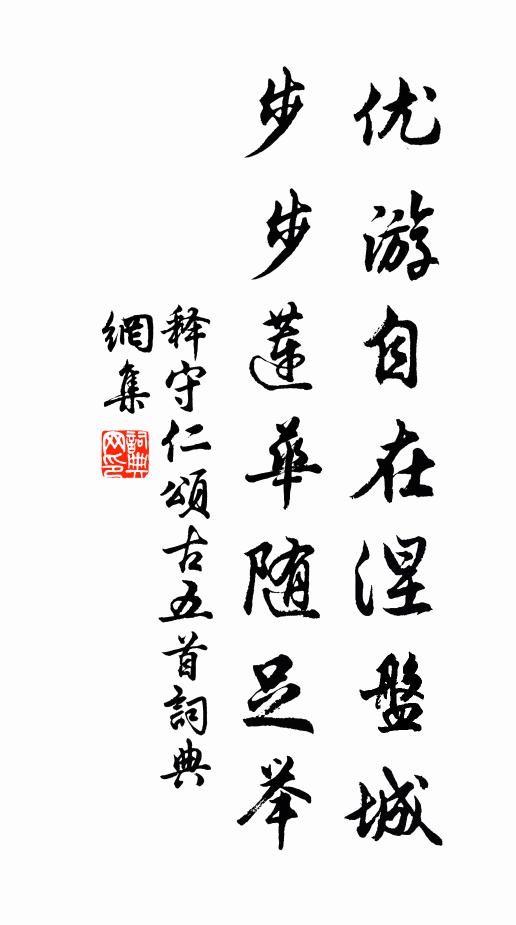 优游自在涅盤城
步步蓮華随足举
释守仁頌古五首詞典
網集
詞典网印